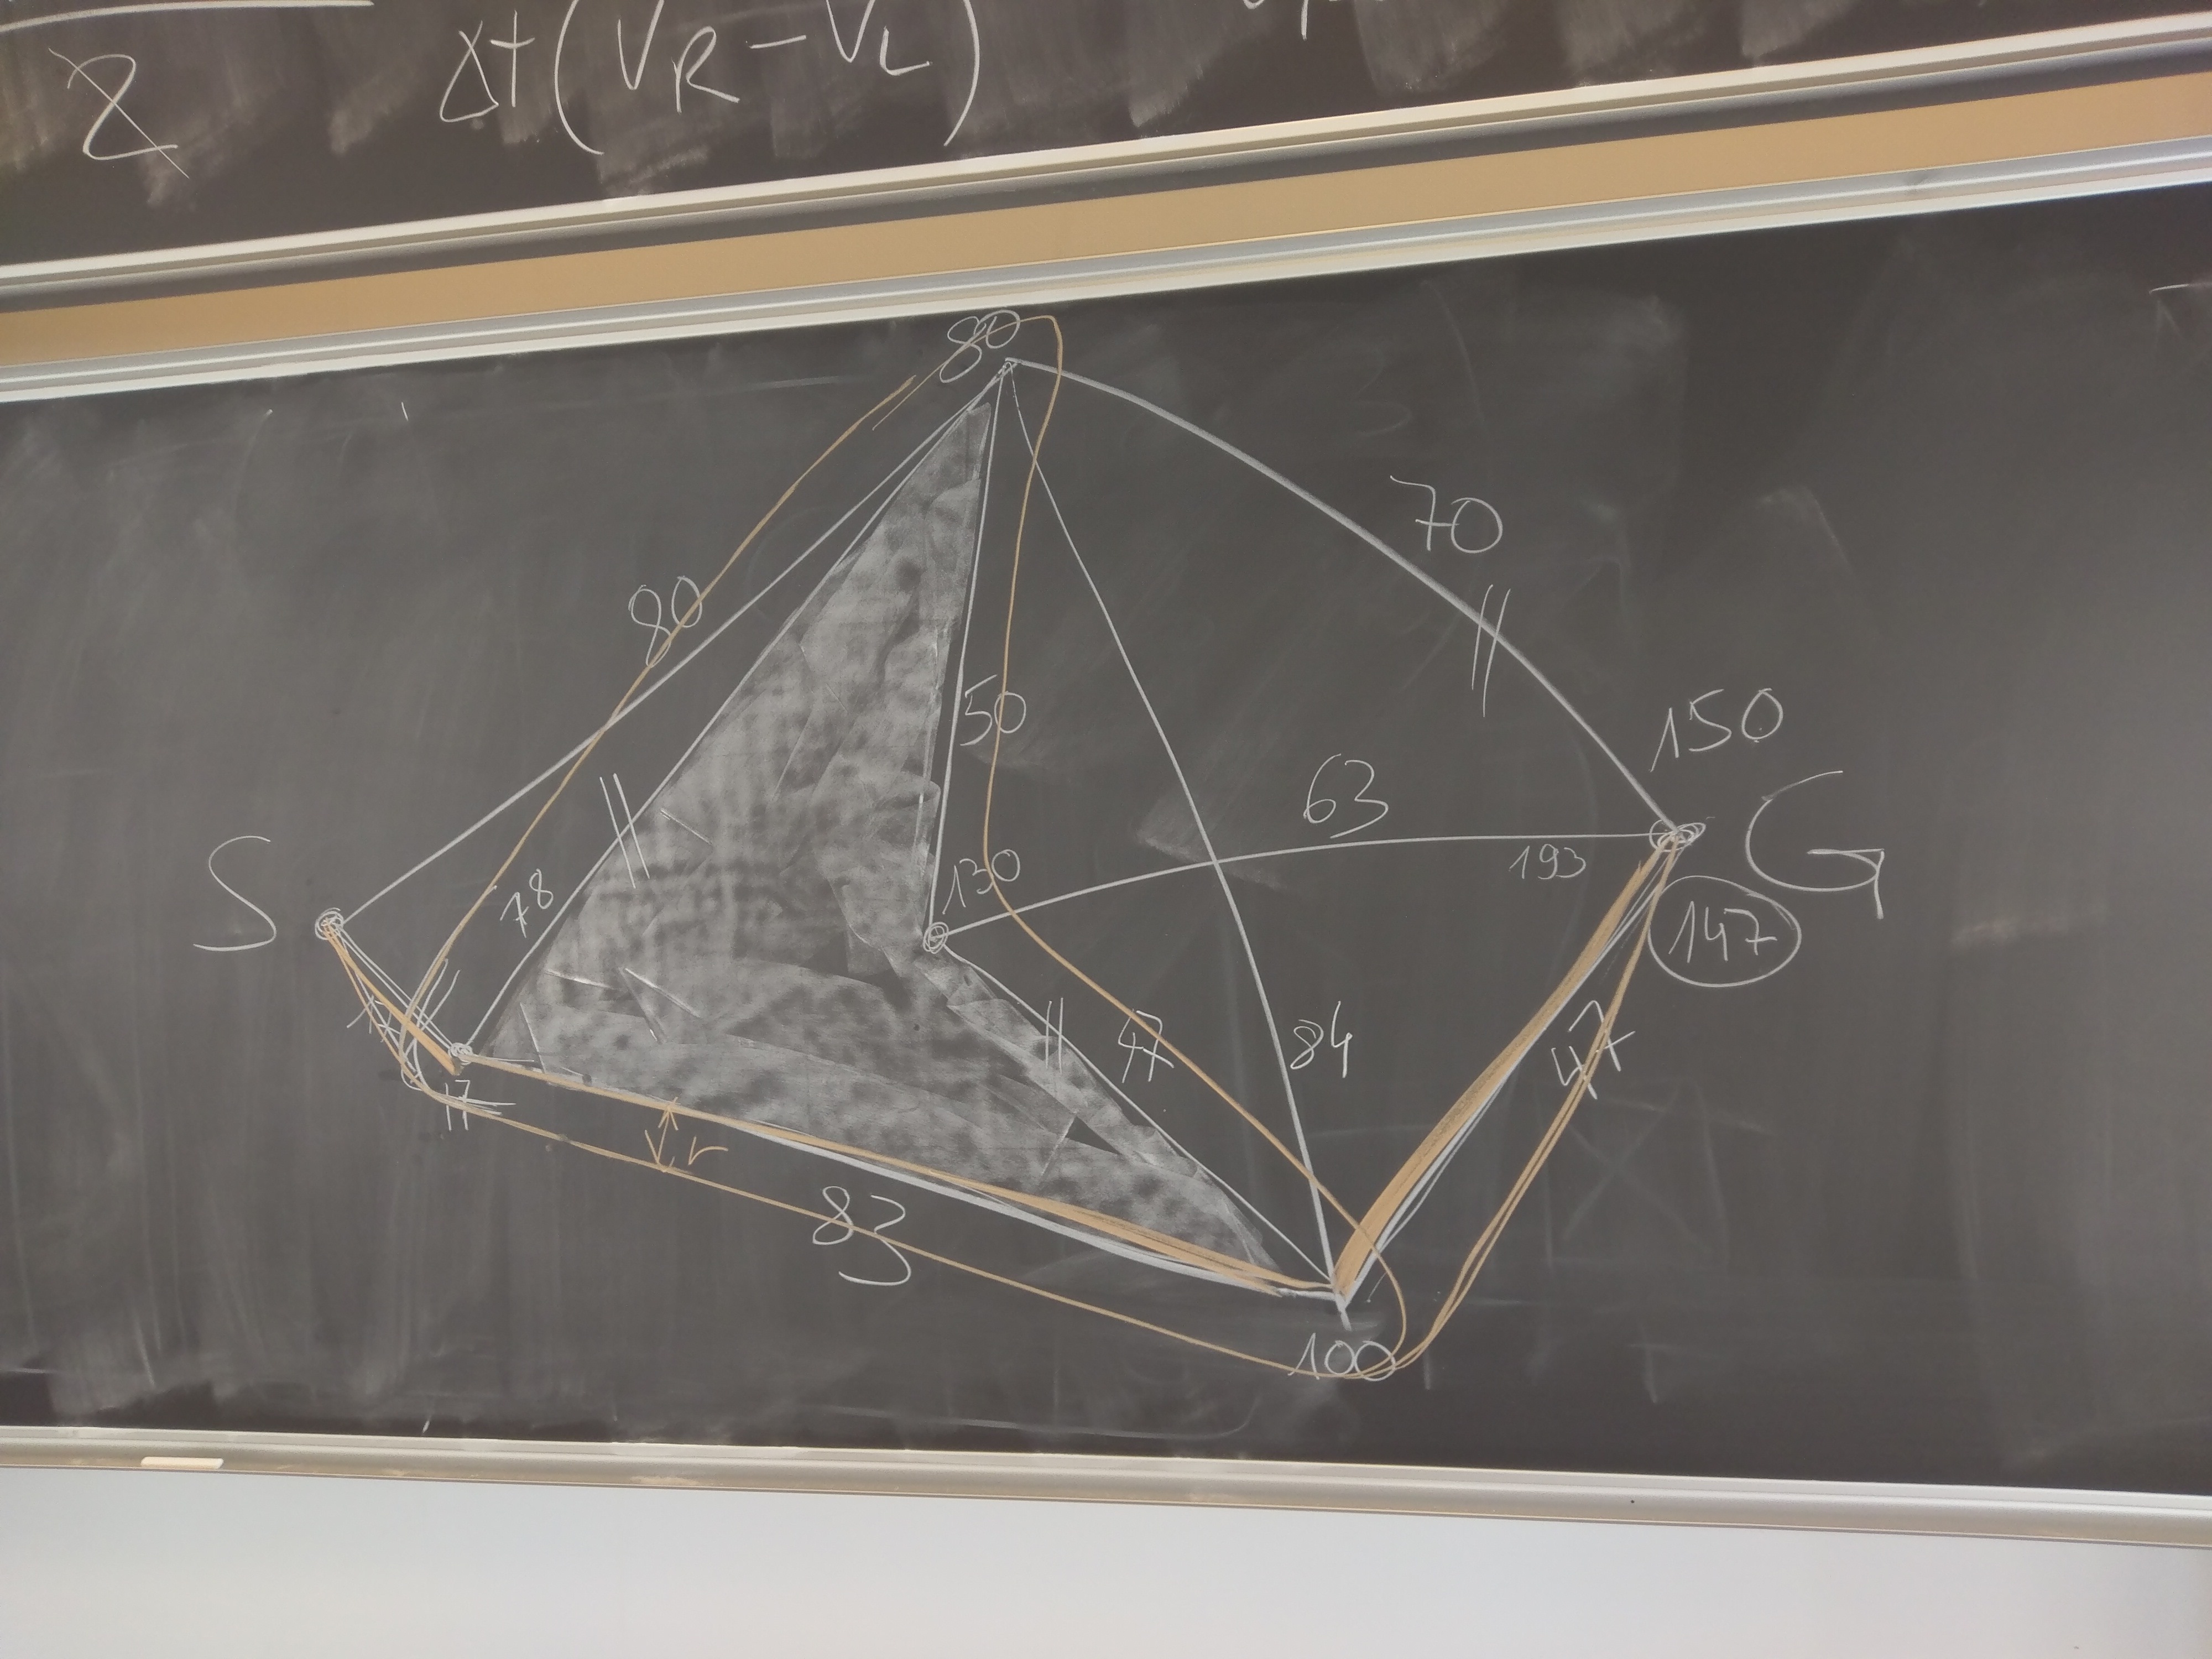 2 Δt(VR-VL)
80
70
80
50
150
63
G
S
78
130
193
147
17
47
84
47
17
r
83
100